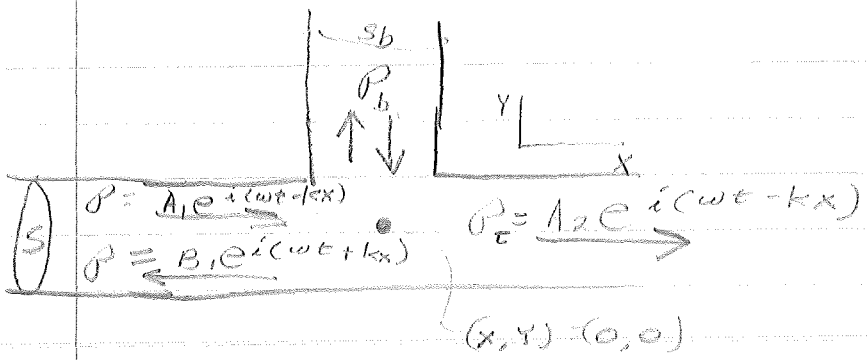 Sb
P_b
Y
X
S
P = A₁e^{i(ωt-kx)}
P = B₁e^{i(ωt+kx)}
P_t = A₂e^{i(ωt-kx)}
(X,Y) = (0,0)